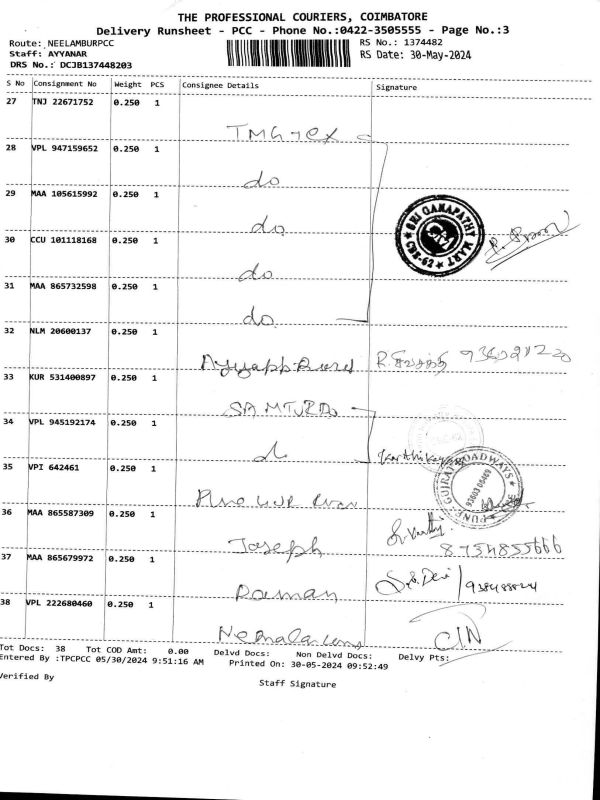 THE PROFESSIONAL COURIERS, COIMBATORE
Delivery Runsheet - PCC - Phone No.:0422-3505555 - Page No.:3
Route: NEELAMBURPCC
RS No.: 1374482
Staff: AYYANAR
RS Date: 30-May-2024
DRS No.: DCJB137448203
S No Consignment No Weight PCS Consignee Details Signature
27 TNJ 22671752 0.250 1
28 VPL 947159652 0.250 1
do
29 MAA 105615992 0.250 1
do
SRI GANAPATHY MART
CBE-62
30 CCU 101118168 0.250 1
do
31 MAA 865732598 0.250 1
do
32 NLM 20600137 0.250 1
33 KUR 531400897 0.250 1
34 VPL 945192174 0.250 1
35 VPI 642461 0.250 1
PUNE GUJRAT ROADWAYS
36 MAA 865587309 0.250 1
Joseph
8754855666
37 MAA 865679972 0.250 1
Raman
38 VPL 222680460 0.250 1
Tot Docs: 38 Tot COD Amt: 0.00 Delvd Docs: Non Delvd Docs: Delvy Pts:
Entered By :TPCPCC 05/30/2024 9:51:16 AM Printed On: 30-05-2024 09:52:49
Verified By
Staff Signature